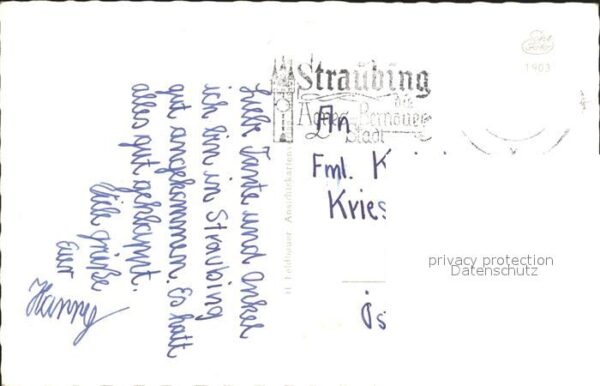 Liebe Tante und Onkel
ich bin in Straubing
gut angekommen. Es hatt
alles gut geklappt.
Viele grüße
Euer
Hanny
H. Feldbauer Ansichtskarten
Straubing
die
Agnes-Bernauer
Stadt
1903
An
Fml. K
Kries
privacy protection
Datenschutz
Ös